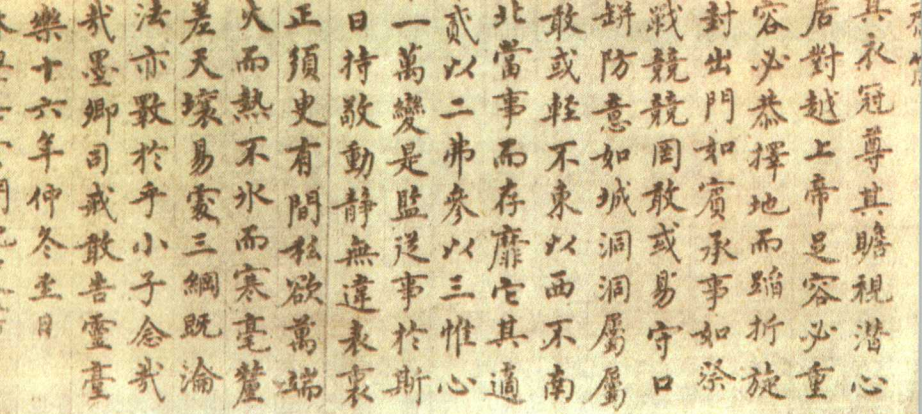 其衣冠尊其瞻視潛心
居對越上帝足容必重
容必恭擇地而蹈折旋
封出門如賓承事如祭
戰競競罔敢或易守口
缾防意如城洞洞屬屬
敢或輕不東以西不南
北當事而存靡它其適
貳以二弗參以三惟心
一萬變是監從事於斯
日持敬動靜無違表裏
正須臾有間私欲萬端
火而熱不氷而寒毫釐
差天壤易處三綱既淪
法亦斁於乎小子念哉
哉墨卿司戒敢告靈臺
樂十六年仲冬至日